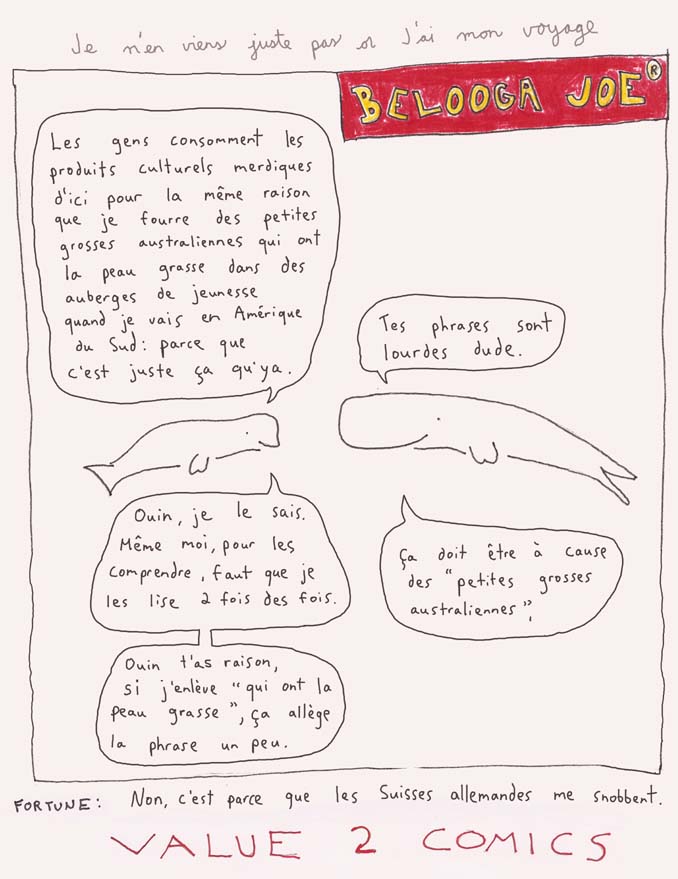 Je n'en viens juste pas or J'ai mon voyage
BELOOGA JOE®
Les gens consomment les
produits culturels merdiques
d'ici pour la même raison
que je fourre des petites
grosses australiennes qui ont
la peau grasse dans des
auberges de jeunesse
quand je vais en Amérique
du Sud: parce que
c'est juste ça qu'ya.
Tes phrases sont
lourdes dude.
Ouin, je le sais.
Même moi, pour les
comprendre, faut que je
les lise 2 fois des fois.
Ça doit être à cause
des "petites grosses
australiennes".
Ouin t'as raison,
si j'enlève "qui ont la
peau grasse", ça allège
la phrase un peu.
FORTUNE: Non, c'est parce que les Suisses allemandes me snobbent.
VALUE 2 COMICS